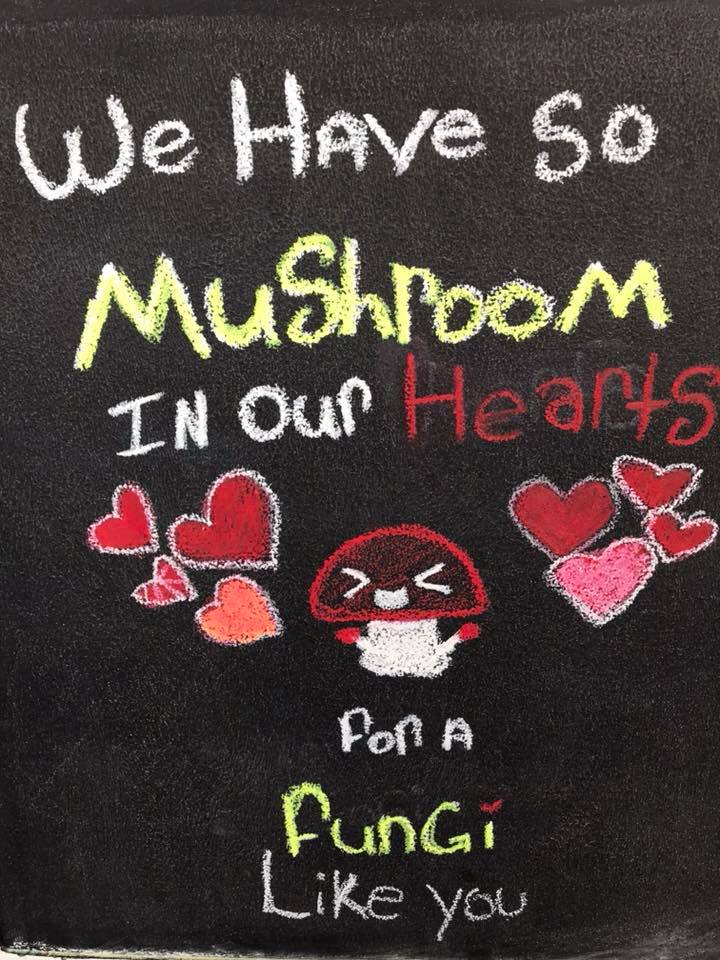 We Have So
MuShrooM
IN our Hearts
for A
funGi
Like you